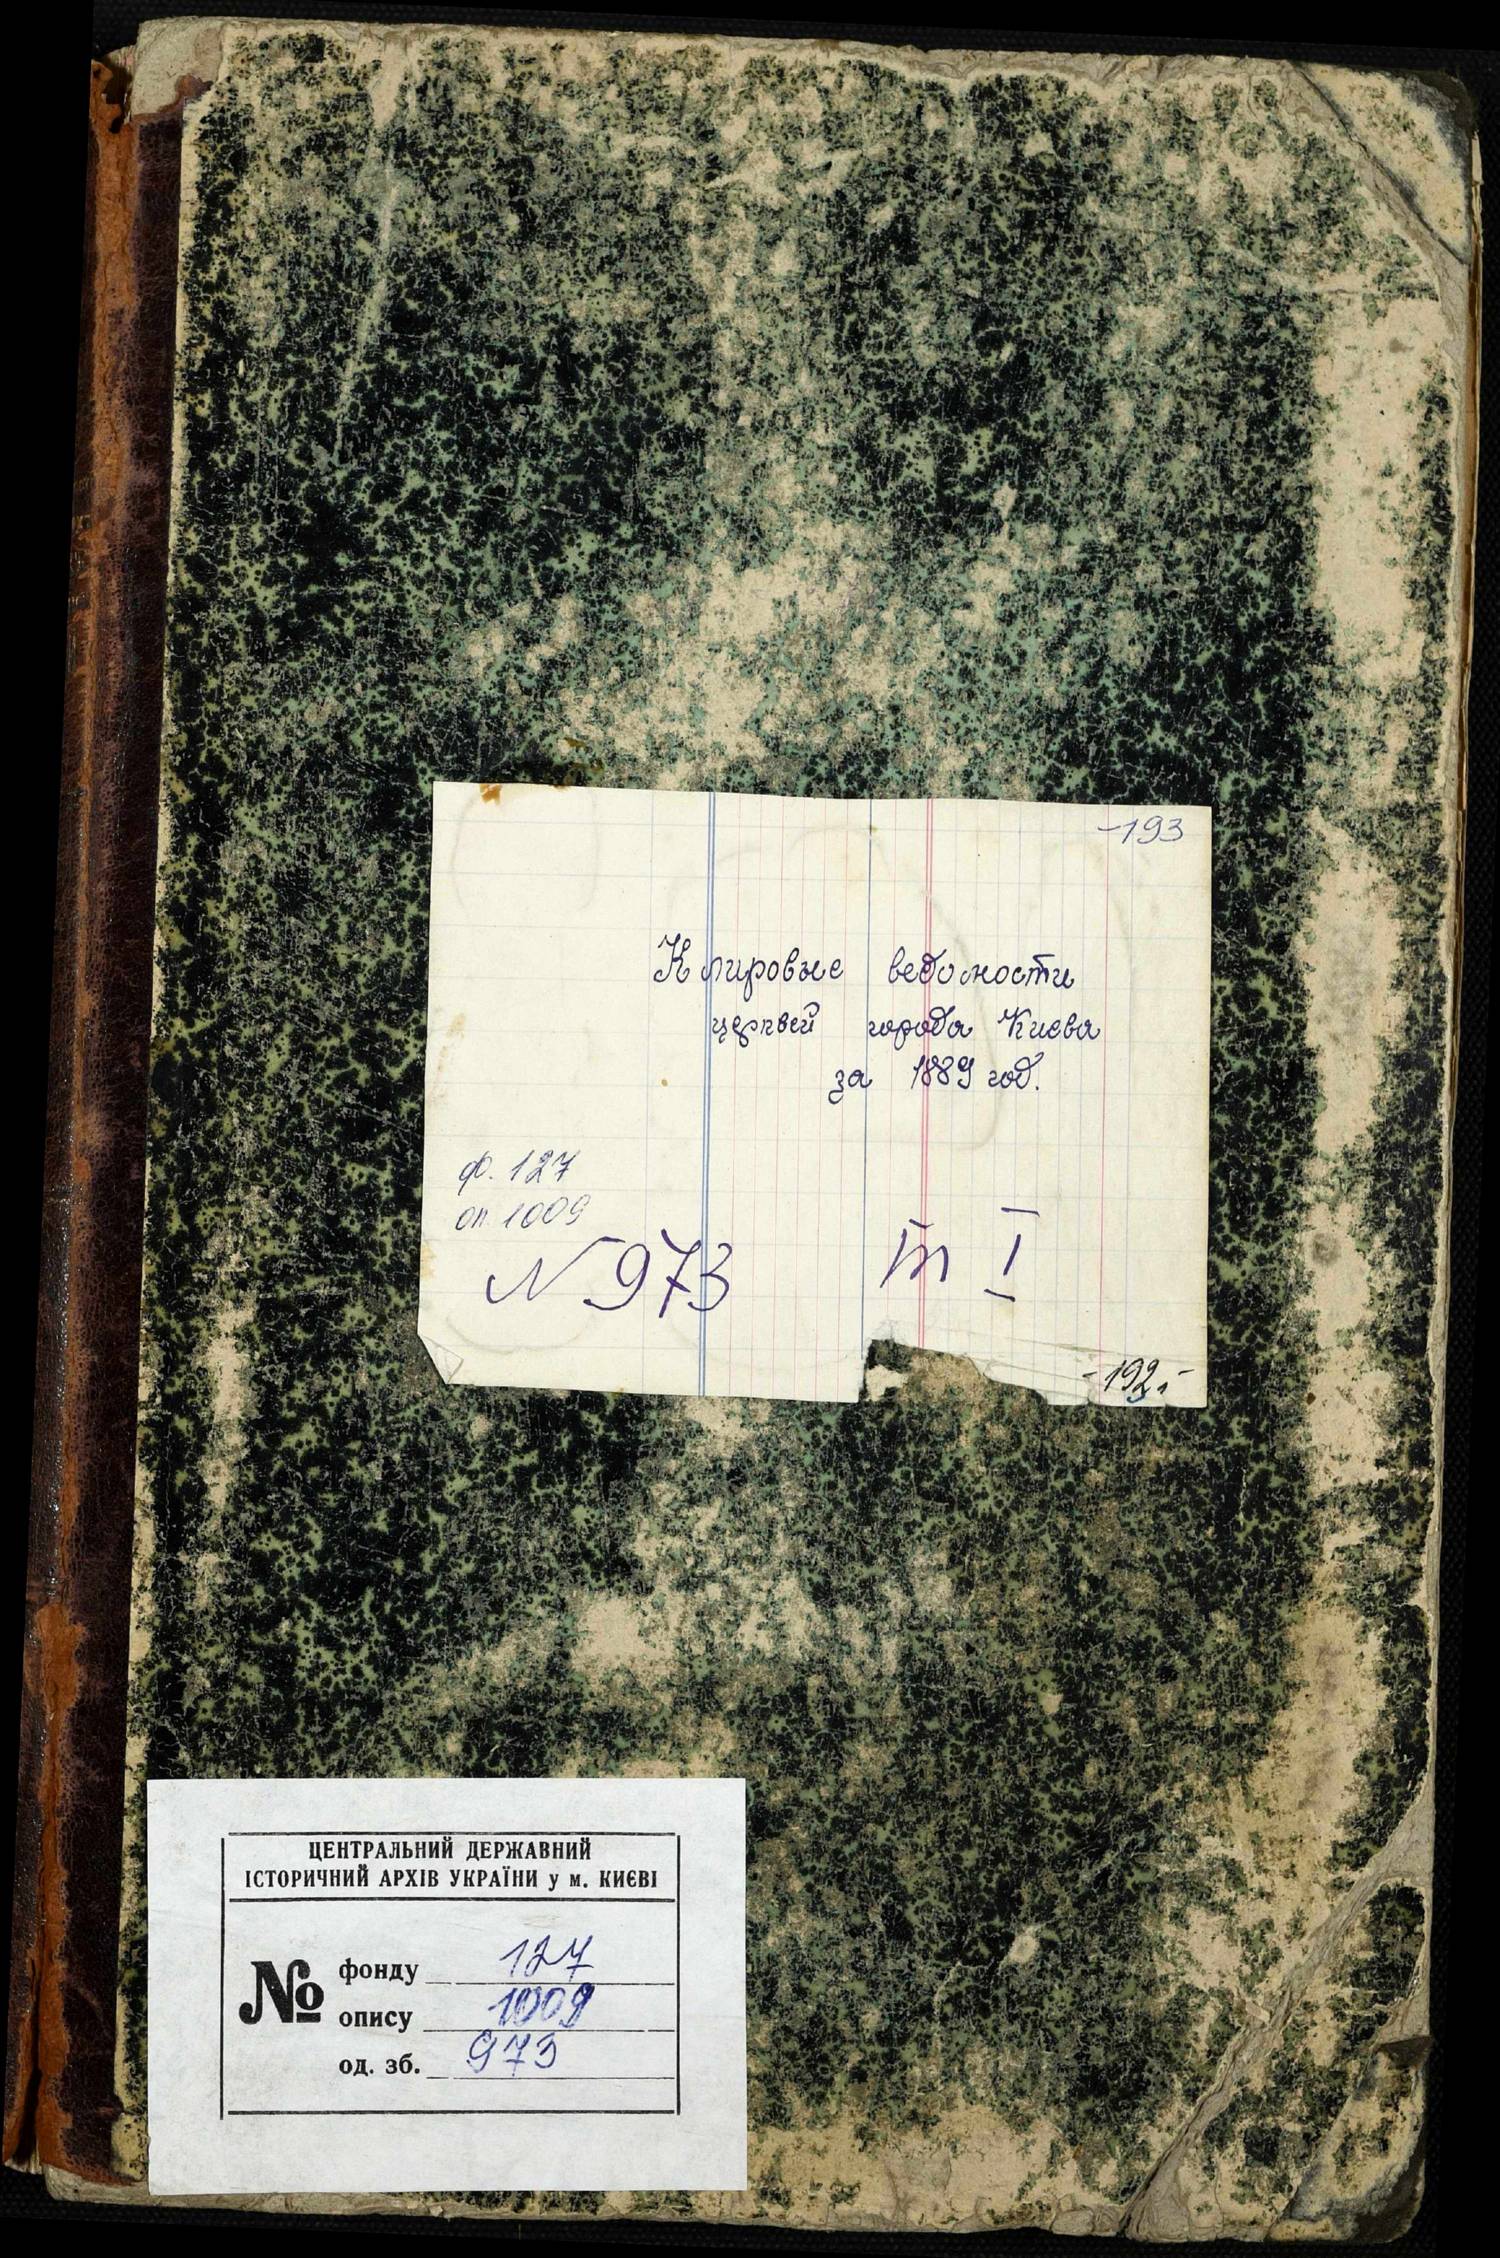 -193
Клировые ведомости
церквей города Киева
за 1889 год.
ф. 127
оп. 1009
№ 973 т I
-192.-
ЦЕНТРАЛЬНИЙ ДЕРЖАВНИЙ
ІСТОРИЧНИЙ АРХІВ УКРАЇНИ у м. КИЄВІ
№ фонду 127
опису 1009
од. зб. 973